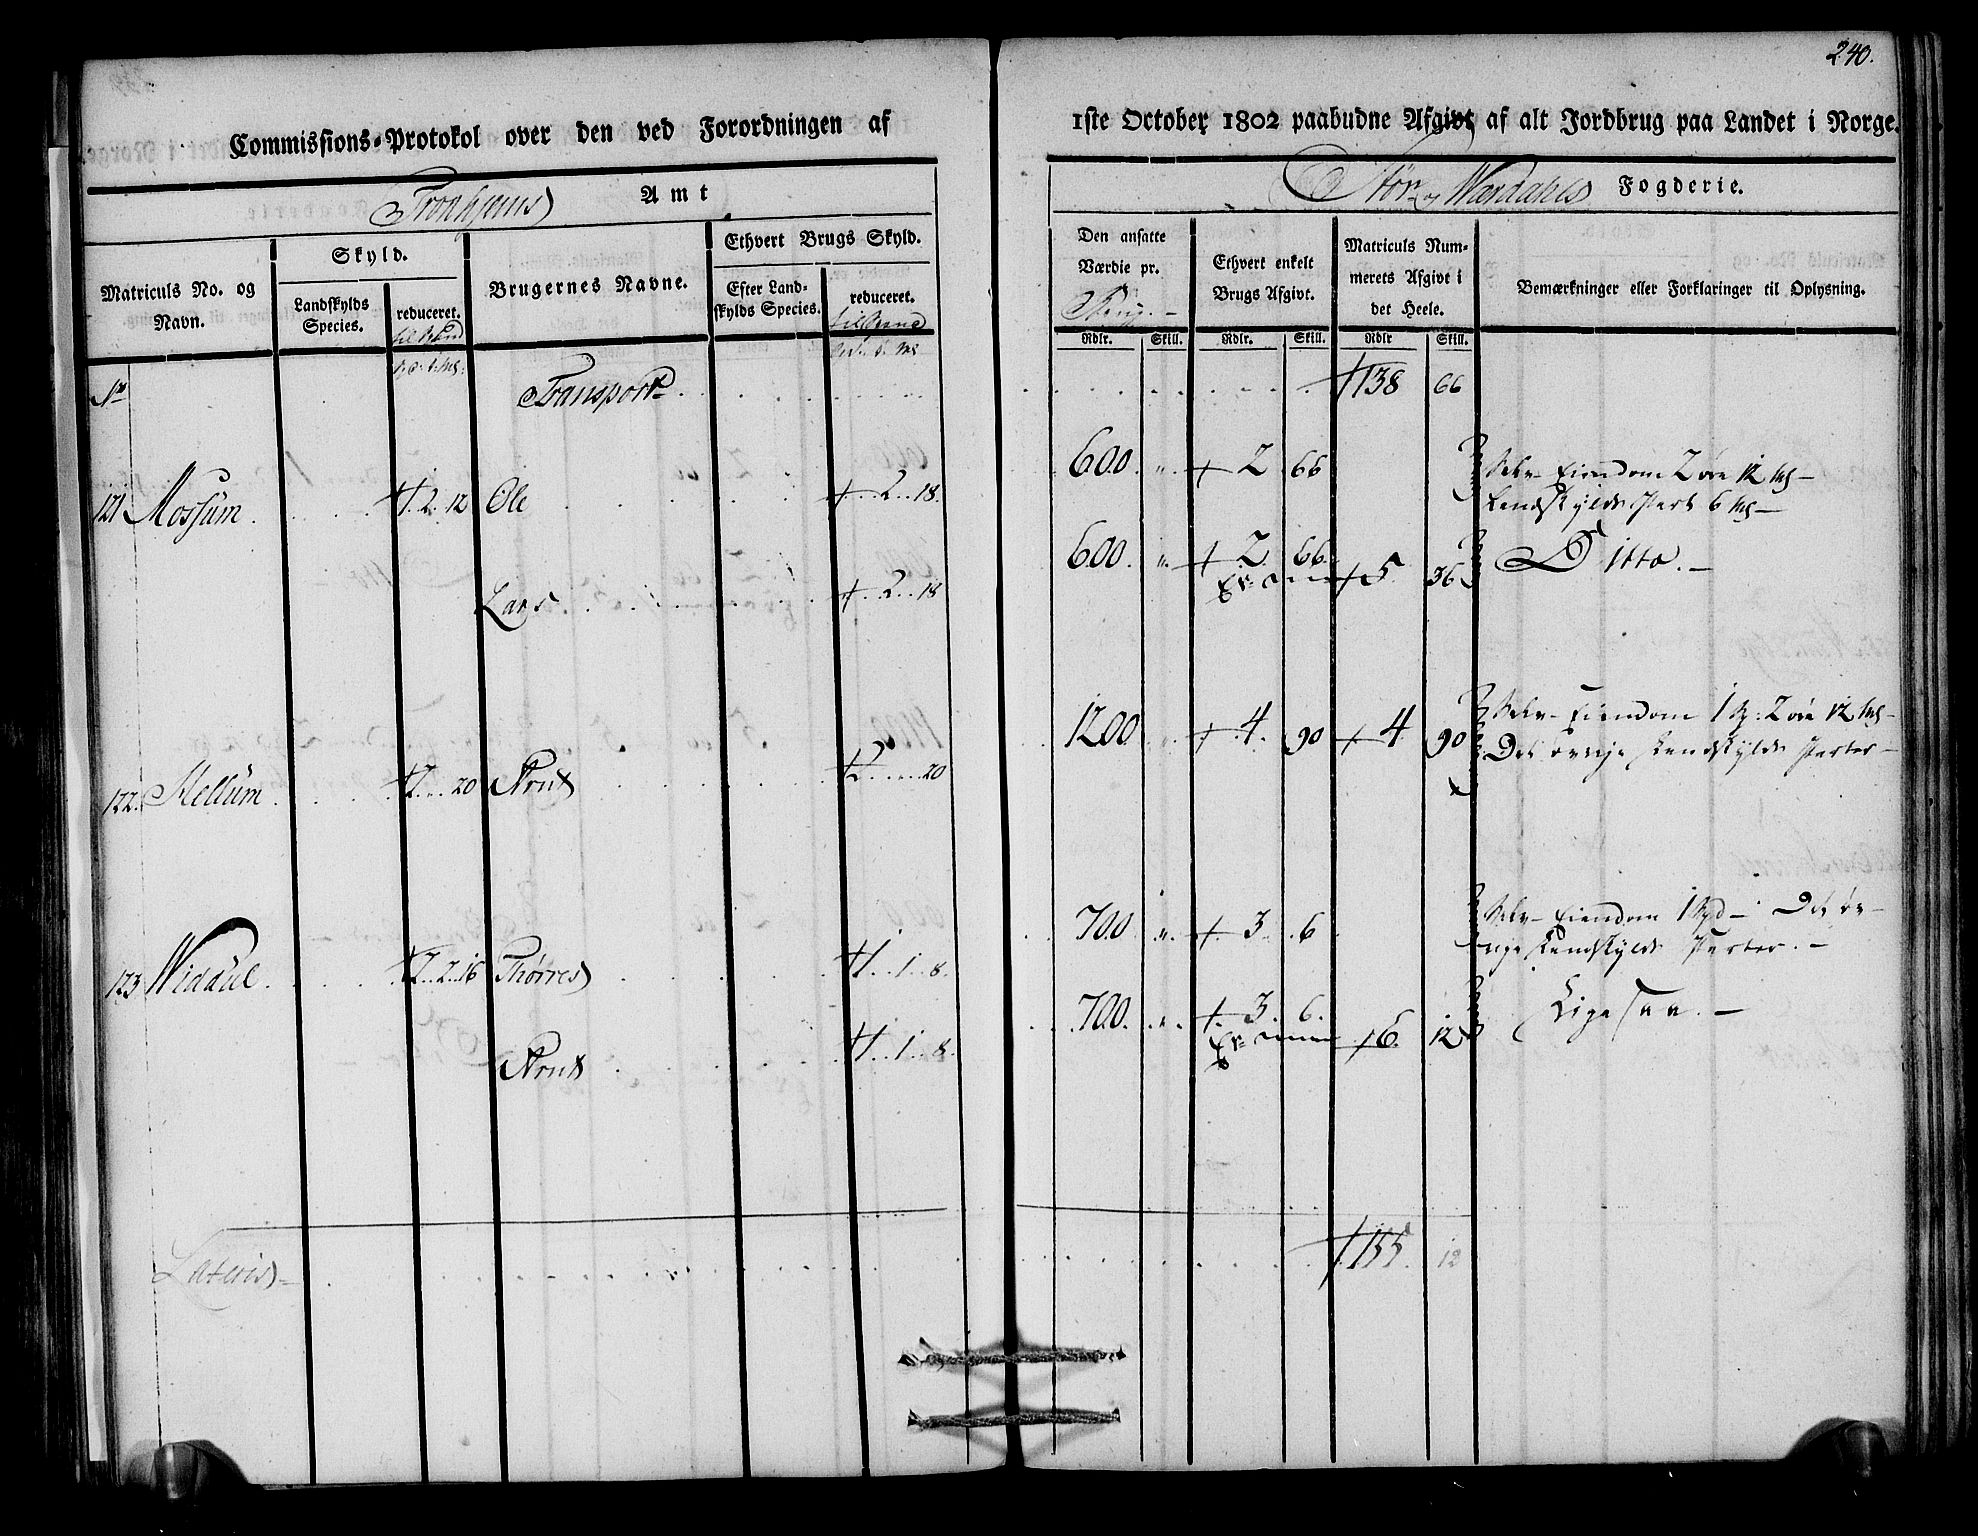 240.
Commissions-Protokol over den ved Forordningen af
1ste October 1802 paabudne Afgivt af alt Jordbrug paa Landet i Norge.
Tronhjems Amt
Stør- og Wærdahls Fogderie.
Matriculs No. og Navn.
Skyld.
Landskylds Species.
reduceret.
Brugernes Navne.
Ethvert Brugs Skyld.
Efter Landskylds Species.
reduceret.
Den ansatte Værdie pr.
Ethvert enkelt Brugs Afgivt.
Matriculs Nummerets Afgivt i det Heele.
Bemærkninger eller Forklaringer til Oplysning.
Rdlr. Skill. Rdlr. Skill. Rdlr Skill.
No Transport 138 66
121 Mossum 1. 2. 12 Ole 2 18. 600 " 2 66 Selv-Eiendom 2 øre 12 mg-
Landskylds Part 6 mg-
Lars 2 18 600. " 2 66. 5 36 Ditto.-
122. Mellum 2 20 Arnt 2 20 1200 4. 90 4 90 Selv-Eiendom 1 Sp: 2 øre 12 mg-
Det øvrige Landskylds Parter-
123 Widdul 2 2 16 Thørres 1 1 8. 700. " 3 6 Selv-Eiendom 1 Spd- Det øv-
rige Landskylds Parter.-
Arnt 1 1 8. 700. " 3. 6. 6. 12 Ligesaa.-
Lateris- 155. 12